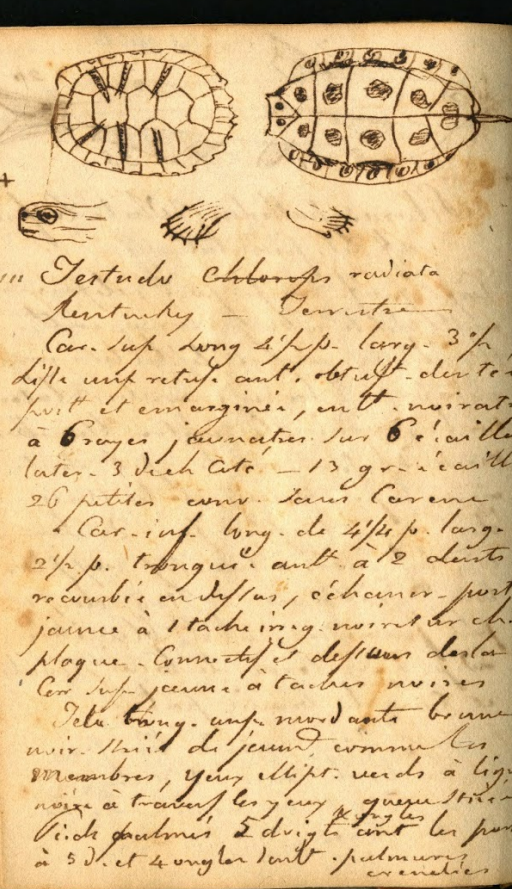 Testudo chlorops radiata
Kentucky — Terrestre
Car. sup. Long 4½ p. larg. 3½ p
ant. obtus. dente
post et emarginée, noirat
à 6 rayes jaunatres sur 6 écaille
later. 3 de ch coté — 13 gr. écaill
26 petites conv. sans Carene
Car. inf. long. de 4¼ p. larg.
2½ p. tronquée ant. à 2 dents
recourbée en dessus, échancr. post
jaune à 1 tache irreg. noire sur ch.
plaque. Connectif et dessous de la
Car. sup. jaune à taches noires
Tete brune
noir. striée de jaune comme les
membres, yeux ellipt. verds à lig
noire à travers les yeux, queue striée
Pieds palmés 5 doigts ongles ant. les post
à 5 d. et 4 ongles palmures
crenelées